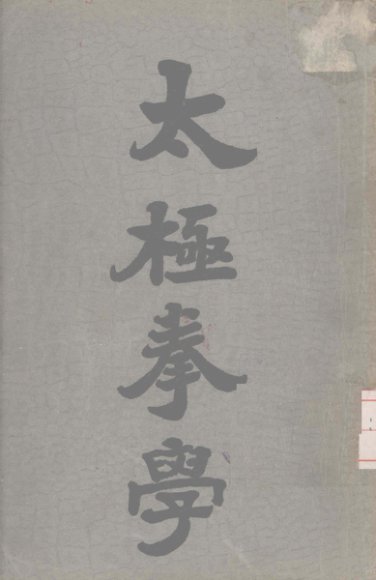 太極拳學